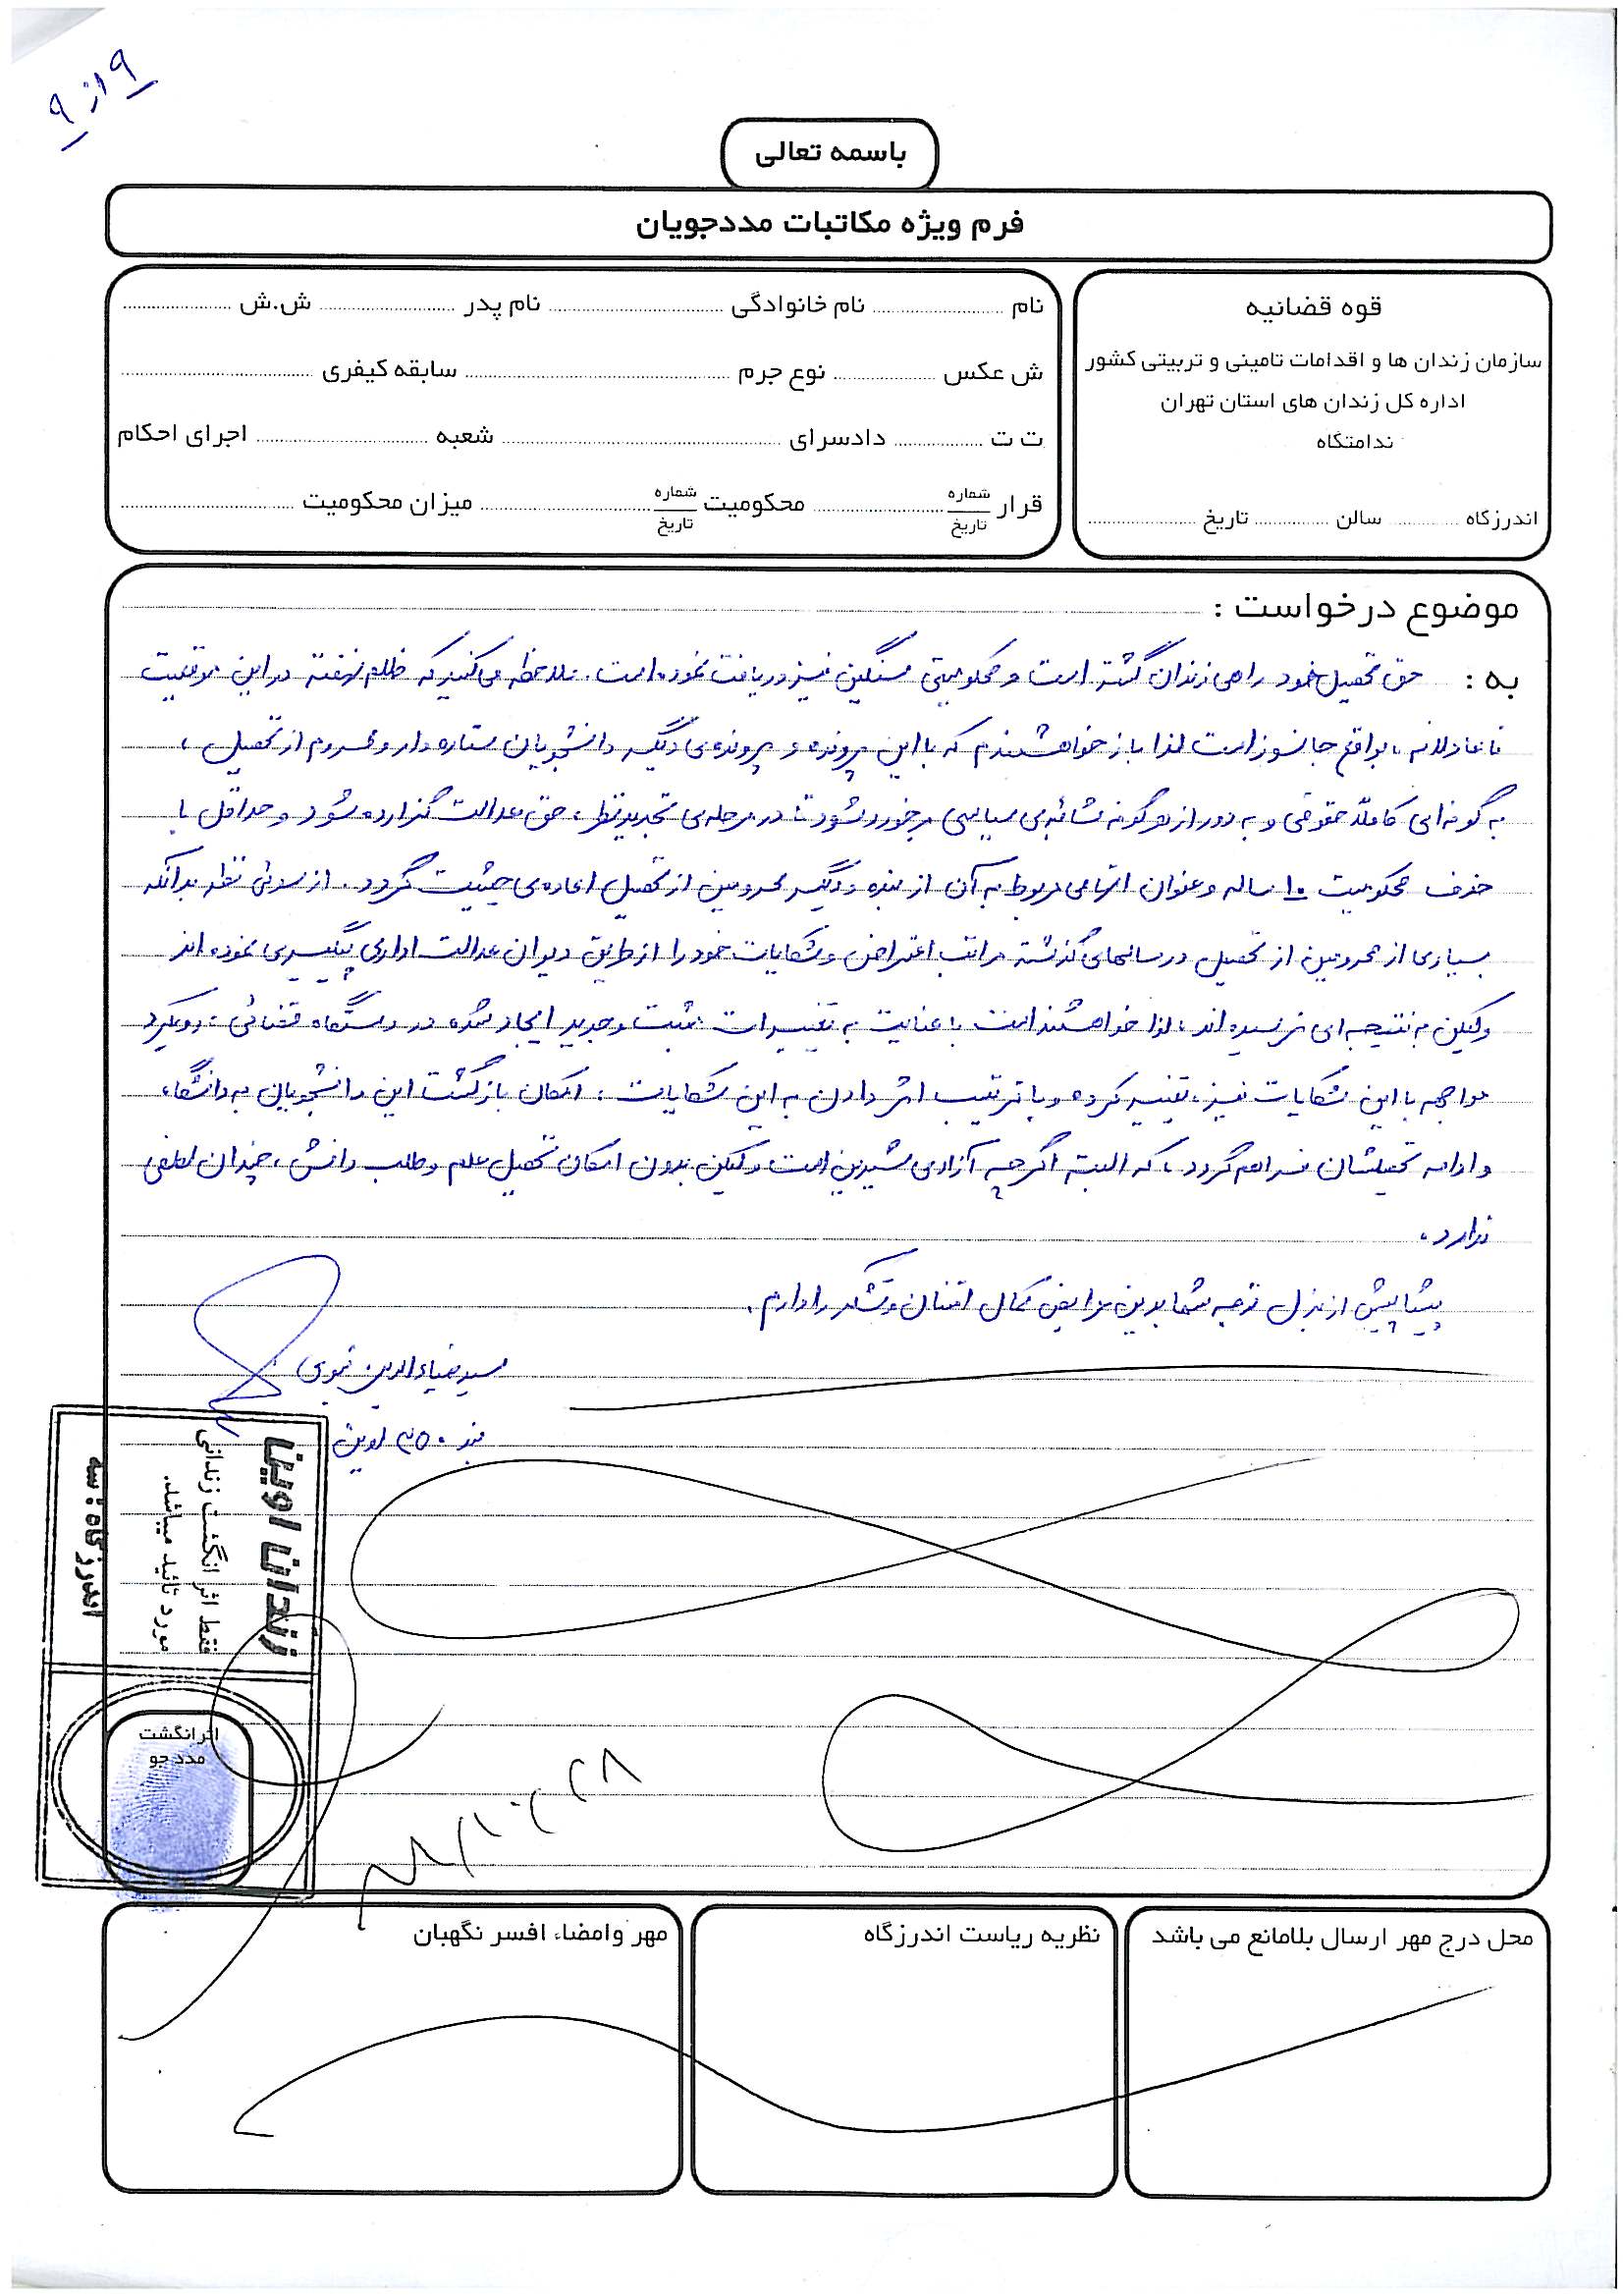 ۹ از ۹
باسمه تعالی
فرم ویژه مکاتبات مددجویان
قوه قضائیه
سازمان زندان ها و اقدامات تامینی و تربیتی کشور
اداره کل زندان های استان تهران
ندامتگاه
اندرزگاه .............. سالن .............. تاریخ ..............
نام .............. نام خانوادگی .............. نام پدر .............. ش.ش ..............
ش عکس .............. نوع جرم .............. سابقه کیفری ..............
ت ت .............. دادسرای .............. شعبه .............. اجرای احکام
قرار شماره تاریخ .............. محکومیت شماره تاریخ .............. میزان محکومیت ..............
موضوع درخواست :
به : حق تحصیل خود راهی زندان گشته است و محکومیتی سنگین نیز دریافت نموده است. ملاحظه می‌کنید که ظلم نهفته در این موقعیت
ناعادلانه، بواقع جانسوز است لذا باز خواهشمندم که با این پرونده و پرونده‌ی دیگر دانشجویان ستاره دار و محروم از تحصیل،
به گونه‌ای کاملاً حقوقی و به دور از هر گونه شائبه‌ی سیاسی برخورد شود تا در مرحله‌ی تجدیدنظر، حق عدالت گزارده شود و حداقل با
حذف محکومیت ۱۰ ساله و عنوان اتهامی مربوط به آن از بنده و دیگر محرومین از تحصیل اعاده‌ی حیثیت گردد. از سوئی نظر بدانکه
بسیاری از محرومین از تحصیل در سالهای گذشته مراتب اعتراض و شکایات خود را از طریق دیوان عدالت اداری پیگیری نموده اند
ولیکن به نتیجه‌ای نرسیده اند، لذا خواهشمند است با عنایت به تغییرات مثبت و جدید ایجاد شده در دستگاه قضائی، رویکرد
مواجهه با این شکایات نیز، تغییر کرده و با ترتیب اثر دادن به این شکایات، امکان بازگشت این دانشجویان به دانشگاه
و ادامه تحصیلشان فراهم گردد، که البته اگرچه آزادی شیرین است ولیکن بدون امکان تحصیل علم و طلب دانش، چندان لطفی
ندارد.
پیشاپیش از بذل توجه شما بدین عرایض کمال امتنان و تشکر را دارم.
سید ضیاءالدین نبوی
بند ۳۵۰ اوین
زندان اوین
فقط اثر انگشت زندانی
مورد تائید میباشد.
اندرزگاه : سه
اثر انگشت
مددجو
محل درج مهر ارسال بلامانع می باشد
نظریه ریاست اندرزگاه
مهر وامضاء افسر نگهبان